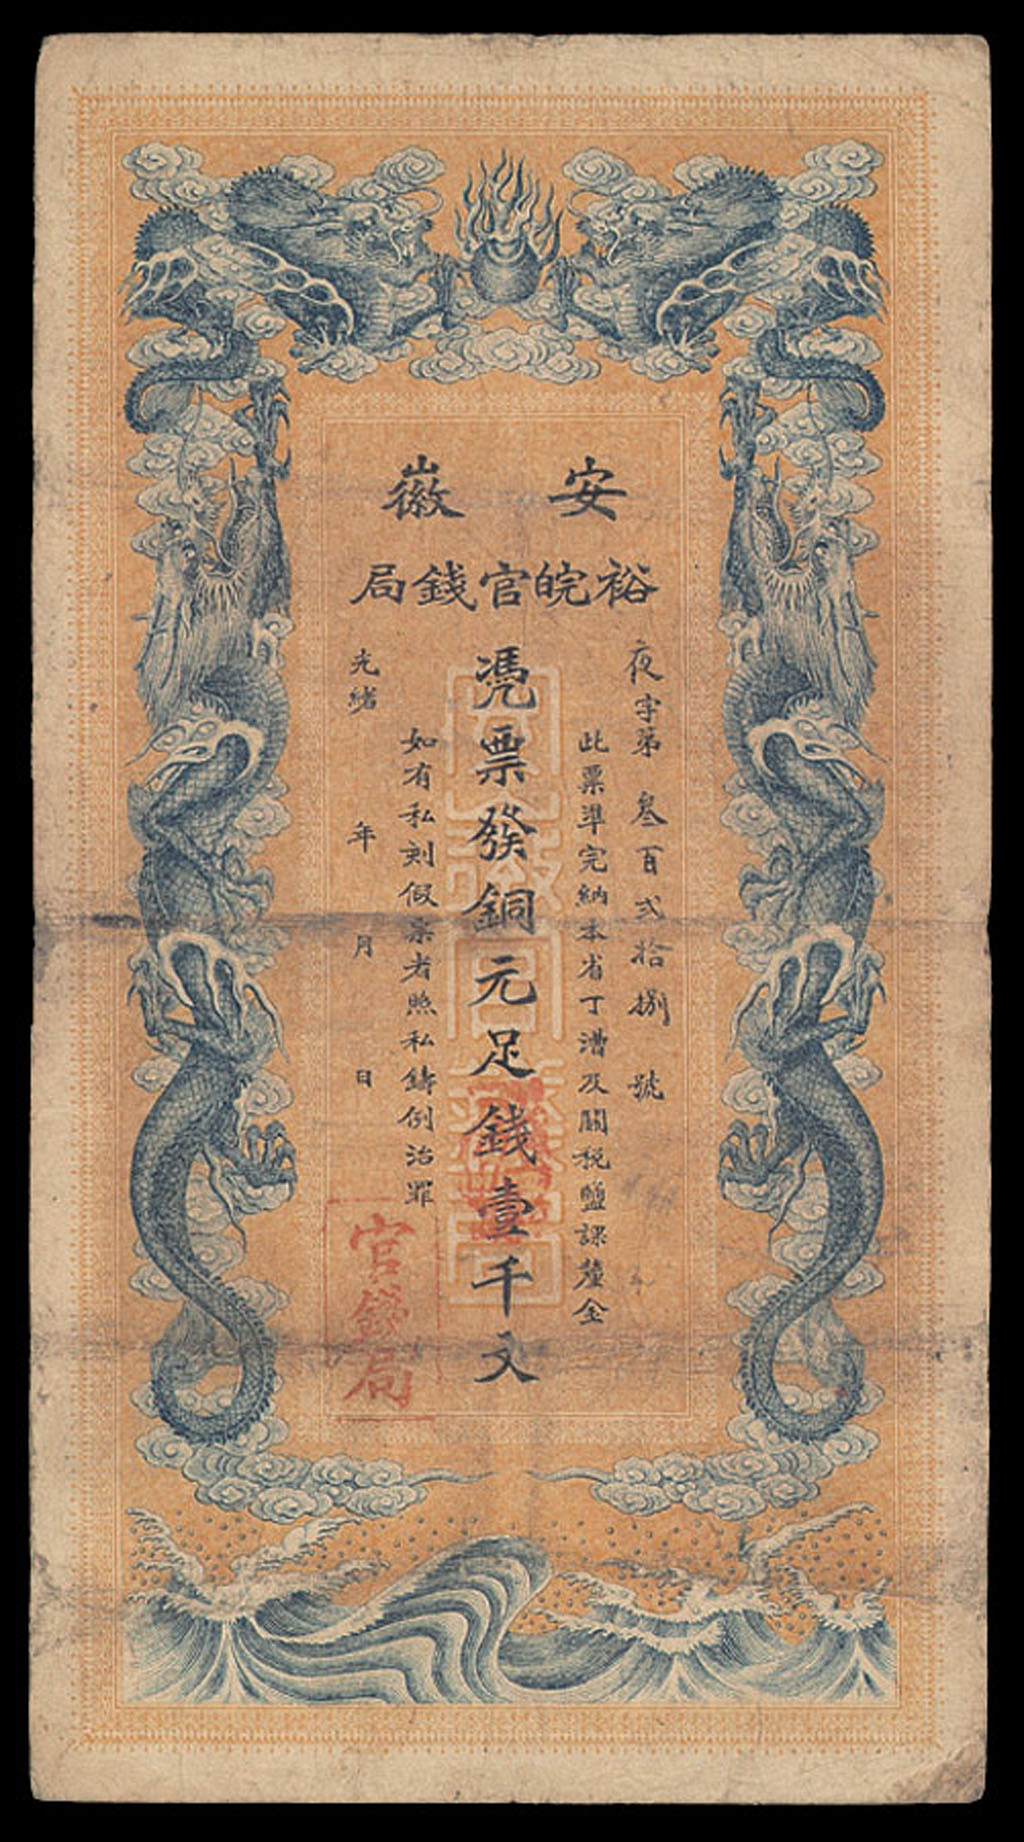 安徽
裕皖官錢局
夜字第叁百弍拾捌號
此票準完納本省丁漕及關税鹽課釐金
憑票發銅元足錢壹千文
如有私刻假票者照私鑄例治罪
光緒 年 月 日
官錢局